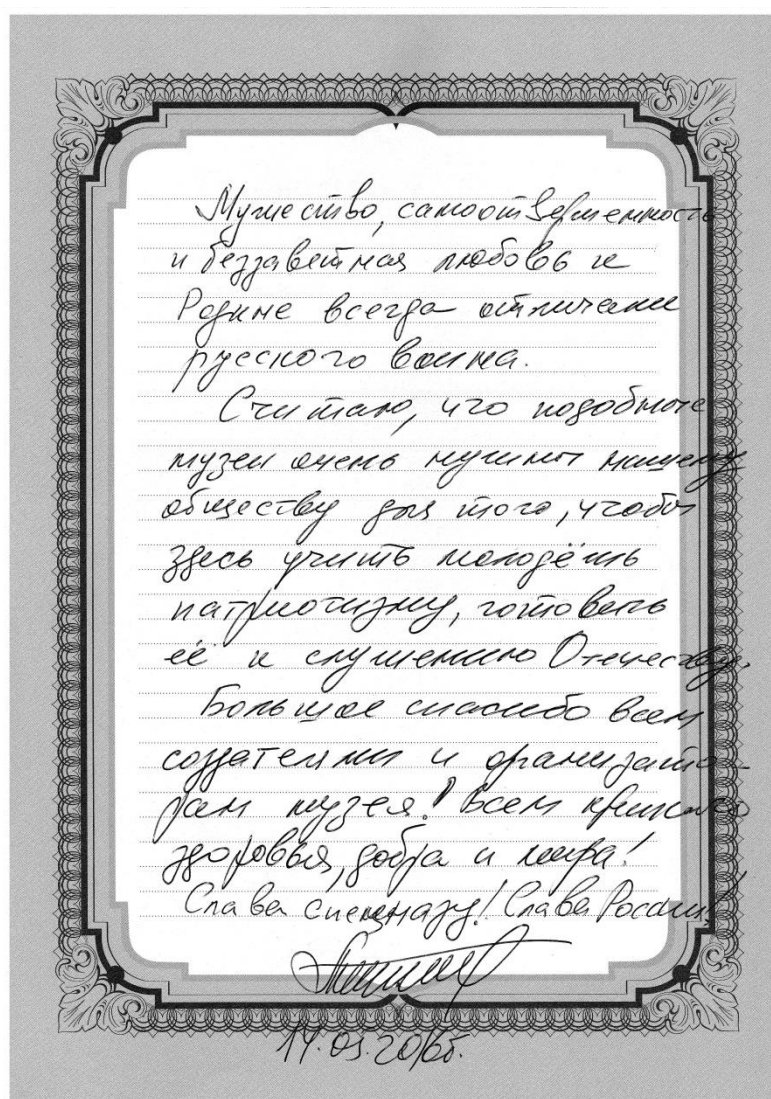 Мужество, самоотверженность
и беззаветная любовь к
Родине всегда отличали
русского воина.
Считаю, что подобные
музеи очень нужны нашему
обществу для того, чтобы
здесь учить молодёжь
патриотизму, готовить
её к служению Отечеству.
Большое спасибо всем
создателям и организато-
рам музея! Всем крепкого
здоровья, добра и мира!
Слава спецназу! Слава России!
14.05.2016г.